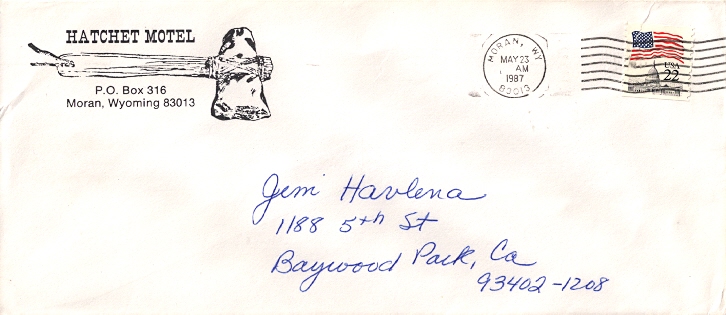 HATCHET MOTEL
P.O. Box 316
Moran, Wyoming 83013
MORAN, WY
MAY 23
AM
1987
83013
USA
22
Jim Havlena
1188 5th St
Baywood Park, Ca
93402-1208